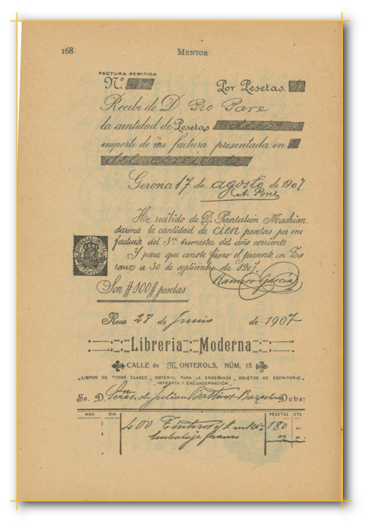 168 MENTOR
FACTURA REMITIDA
N.º Por Pesetas
Recibí de D. Pío Paré
la cantidad de Pesetas
importe de mi factura presentada en
Gerona 17 de agosto de 1907
He recibido de D. Pantaleón Machian-
darena la cantidad de cien pesetas por mi
factura del 3er trimestre del año corriente
Y para que conste firmo el presente en Za-
rauz a 30 de septiembre de 1907.
Ramiro García
Son # 100 # pesetas
Reus 27 de Junio de 1907
Libreria Moderna
CALLE de MONTEROLS, NÚM, 15
LIBROS DE TODAS CLASES, MATERIAL PARA LA ENSEÑANZA, OBJETOS DE ESCRITORIO,
IMPRENTA Y ENCUADERNACIÓN
Sr. D. de Julian Barcelona Debe:
DIA PESETAS CTS.
400 Tinteros 180
embalaje franco